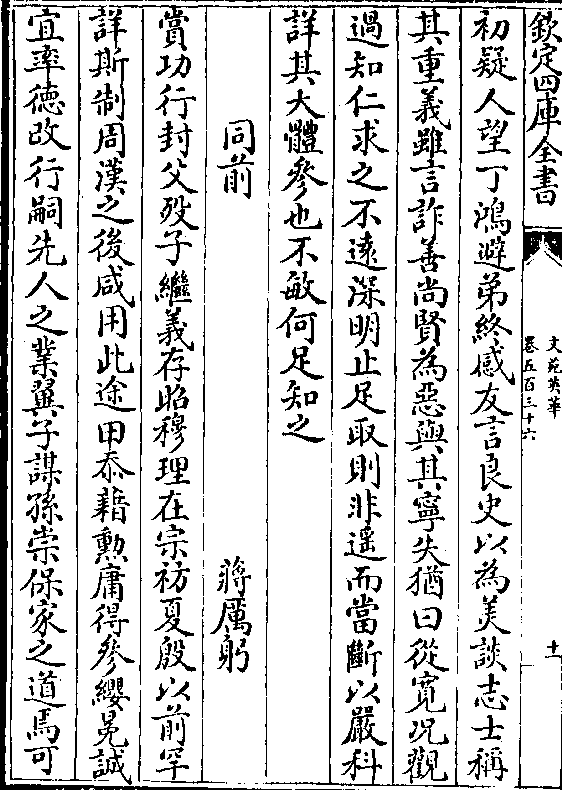 欽定四庫全書
文苑英華
卷五百三十六
十
初疑人望丁鴻避弟終感友言良史以為美談志士稱
其重義雖言詐善尚賢為惡與其寧失猶曰從寛況觀
過知仁求之不逺深明止足取則非遥而當斷以嚴科
詳其大體參也不敏何足知之
同前
蔣厲躬
賞功行封父歿子繼義存昭穆理在宗祊夏殷以前罕
詳斯制周漢之後咸用此途甲忝藉勲庸得參纓冕誠
宜率徳改行嗣先人之業翼子謀孫崇保家之道焉可